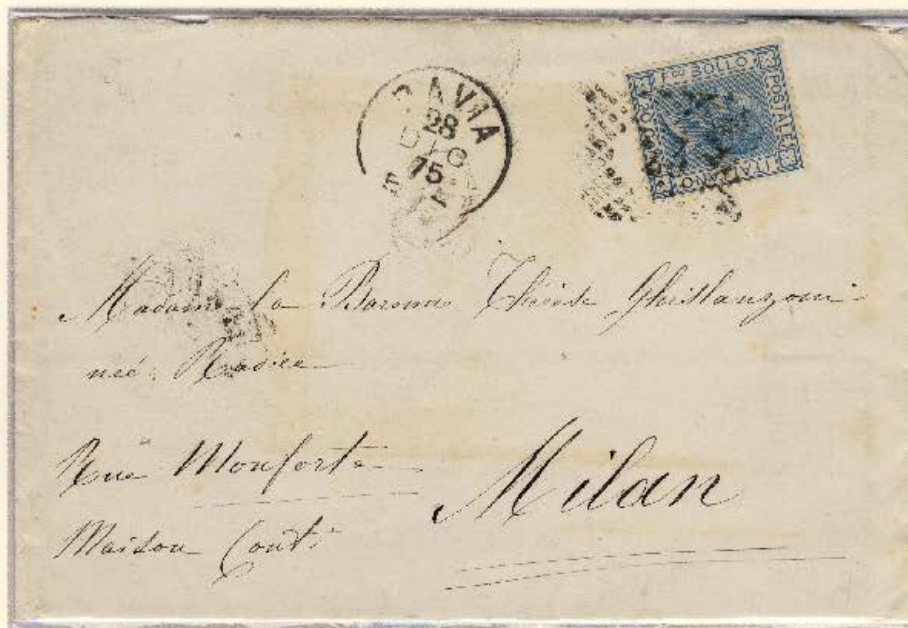 PAVIA
28
DIC
75
FRANCO BOLLO
POSTALE
ITALIANO
20 C
Madame la Baronne Thérèse Ghislanzoni
née Radice
Rue Monforte
Milan
Maison Conti